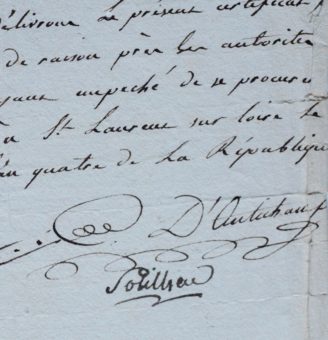 délivroné le présent certificat
de raison près les autorités
ayant empeché de se procurer
à St Laurent sur loire le
l'an quatre de La République
D'Autichamp
Soulhac